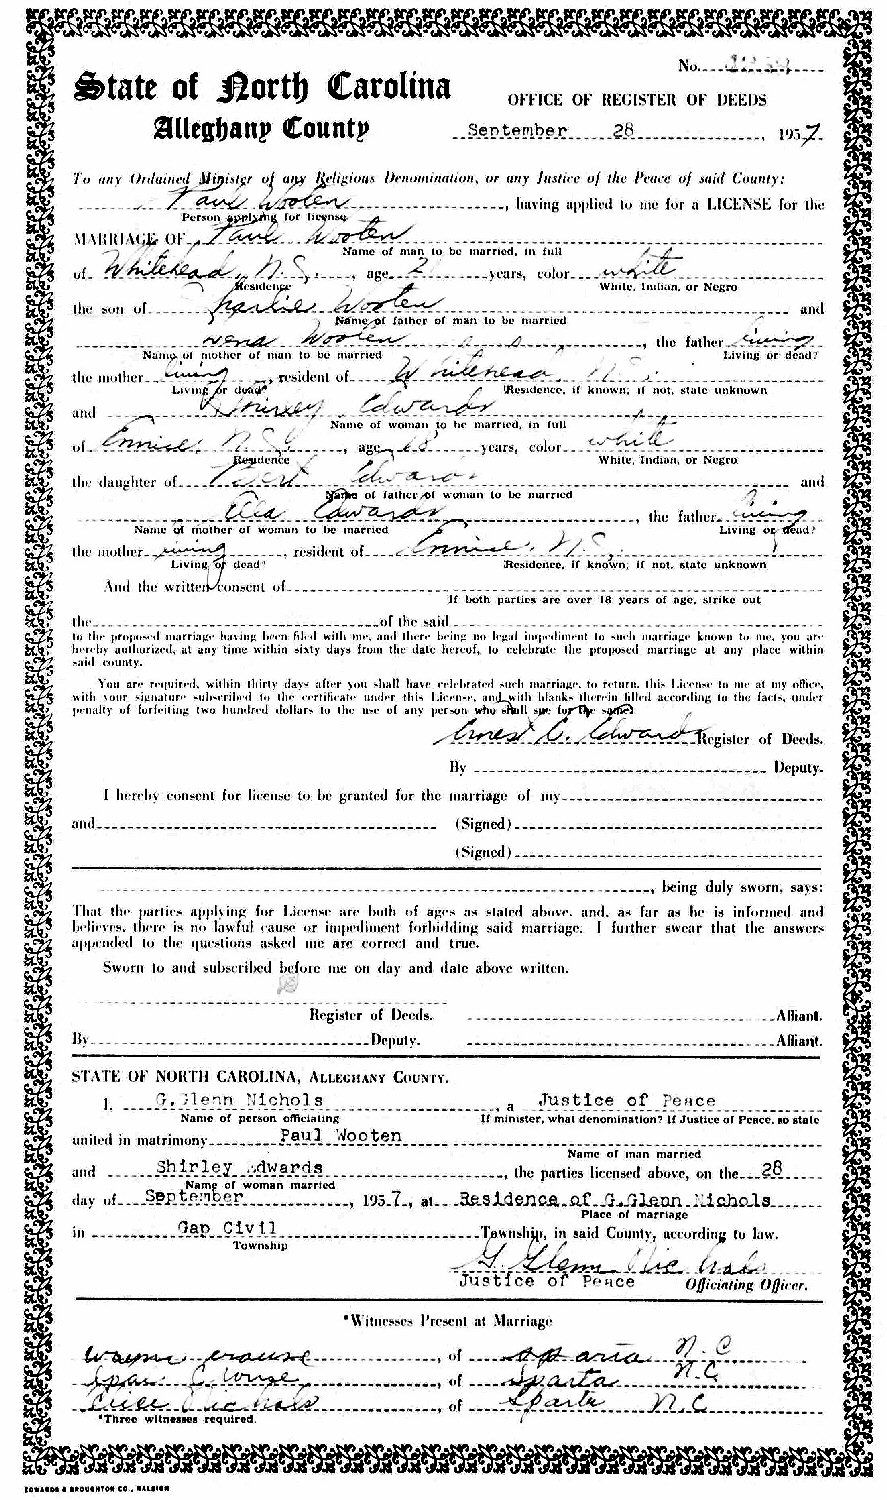 No.
State of North Carolina
OFFICE OF REGISTER OF DEEDS
Alleghany County
September 28, 1957
To any Ordained Minister of any Religious Denomination, or any Justice of the Peace of said County:
Paul Wooten, having applied to me for a LICENSE for the
Person applying for license
MARRIAGE OF Paul Wooten
Name of man to be married, in full
of Whitehead, N.C., age 21 years, color white
Residence White, Indian, or Negro
the son of Charlie Wooten and
Name of father of man to be married
Wooten, the father living
Name of mother of man to be married Living or dead?
the mother living, resident of Whitehead, N.C.
Living or dead? Residence, if known; if not, state unknown
and Shirley Edwards
Name of woman to be married, in full
of Ennice, N.C., age 18 years, color white
Residence White, Indian, or Negro
the daughter of Bert Edwards and
Name of father of woman to be married
Edwards, the father living
Name of mother of woman to be married Living or dead?
the mother living, resident of Ennice, N.C.
Living or dead? Residence, if known; if not, state unknown
And the written consent of
If both parties are over 18 years of age, strike out
the of the said
to the proposed marriage having been filed with me, and there being no legal impediment to such marriage known to me, you are
hereby authorized, at any time within sixty days from the date hereof, to celebrate the proposed marriage at any place within
said county.
You are required, within thirty days after you shall have celebrated such marriage, to return, this License to me at my office,
with your signature subscribed to the certificate under this License, and with blanks therein filled according to the facts, under
penalty of forfeiting two hundred dollars to the use of any person who shall sue for the same.
Ernest C. Edwards Register of Deeds.
By Deputy.
I hereby consent for license to be granted for the marriage of my
and (Signed)
(Signed)
, being duly sworn, says:
That the parties applying for License are both of ages as stated above, and, as far as he is informed and
believes, there is no lawful cause or impediment forbidding said marriage. I further swear that the answers
appended to the questions asked me are correct and true.
Sworn to and subscribed before me on day and date above written.
Register of Deeds. Affiant.
By Deputy. Affiant.
STATE OF NORTH CAROLINA, ALLEGHANY COUNTY.
I, G.Glenn Nichols, a Justice of Peace
Name of person officiating If minister, what denomination? If Justice of Peace, so state
united in matrimony Paul Wooten
Name of man married
and Shirley Edwards, the parties licensed above, on the 28
Name of woman married
day of September, 1957, at Residence of G.Glenn Nichols
Place of marriage
in Gap Civil Township, in said County, according to law.
Township
G. Glenn Nichols
Justice of Peace Officiating Officer.
*Witnesses Present at Marriage
Wayne Crouse, of Sparta N.C
Crouse, of Sparta N.C.
Nichols of Sparta N.C
*Three witnesses required.
EDWARDS & BROUGHTON CO., RALEIGH